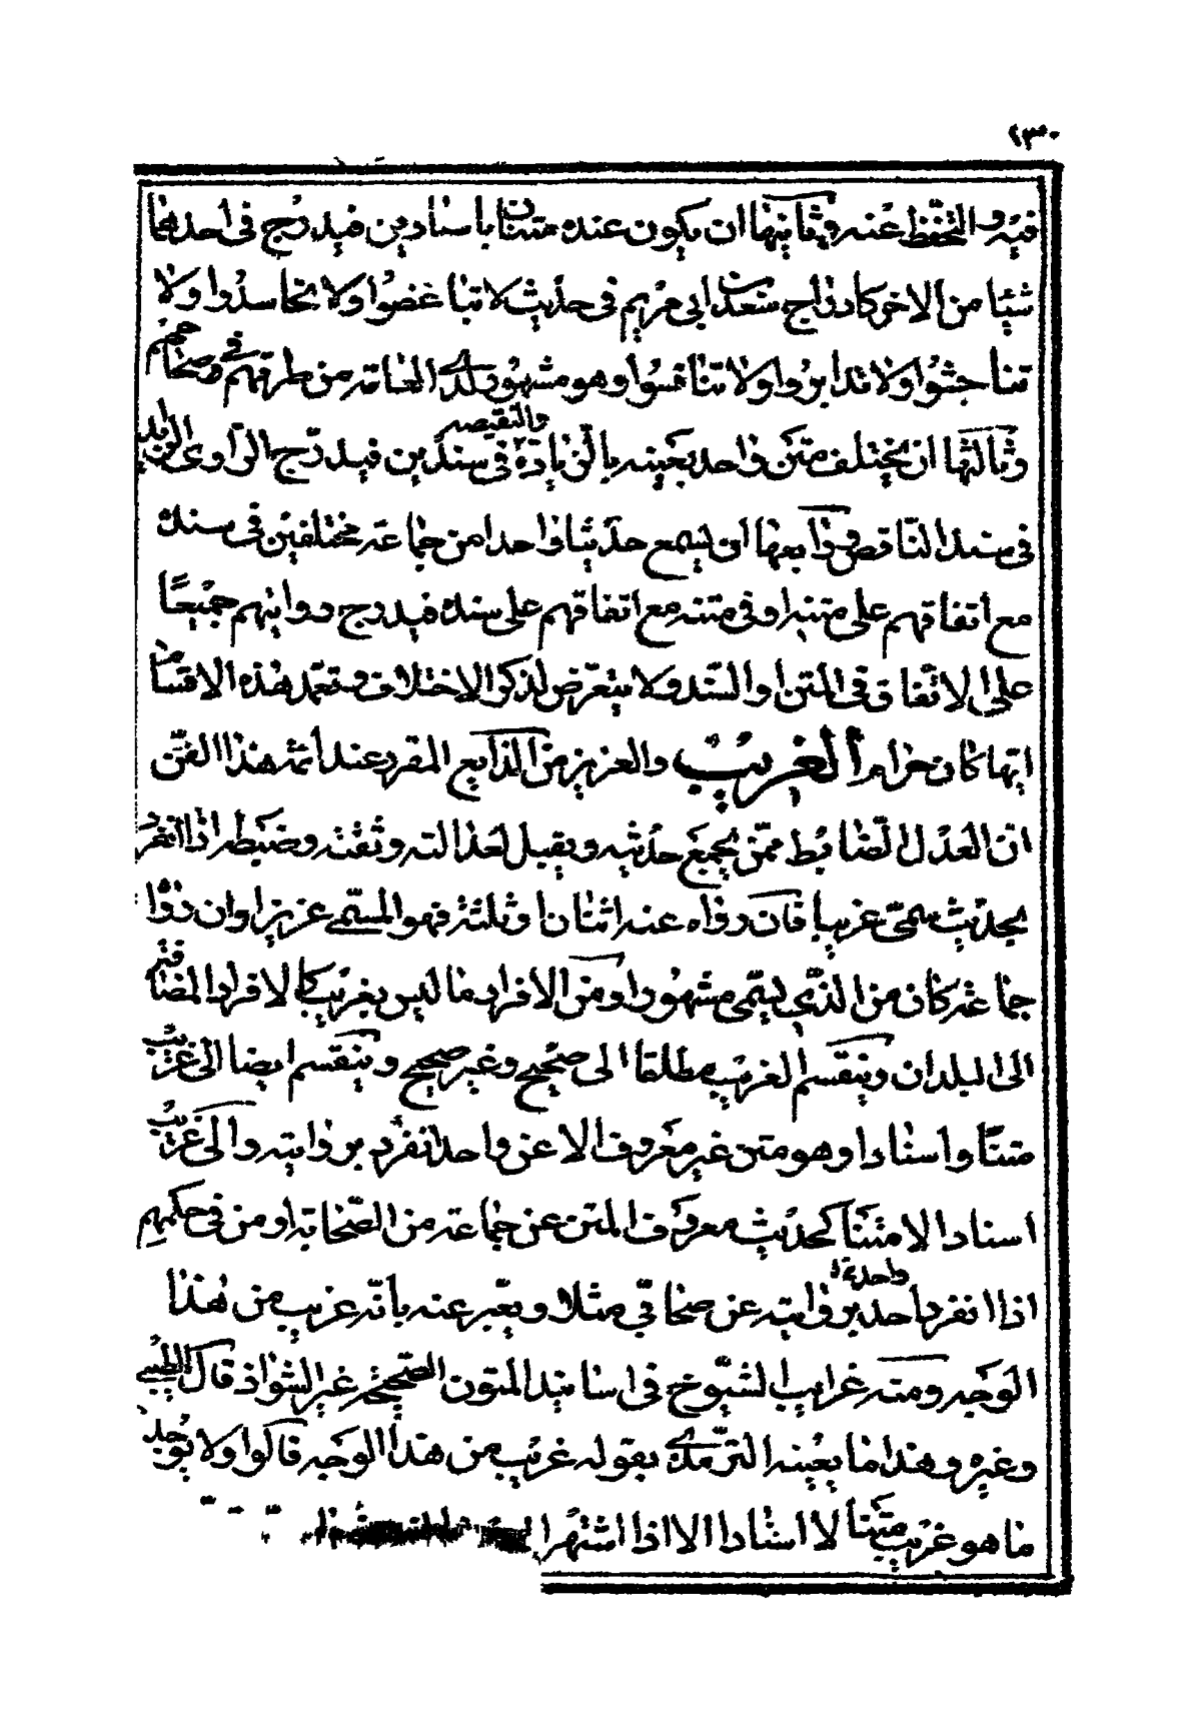 ٢٣٠
فيه والتحفظ عنه وثانيها ان يكون عنده متنان باسنادين فيدرج فى احدهما
شيئا من الاخر كادراج سعد بن ابى مريم فى حديث لا تباغضوا ولا تحاسدوا ولا
تناجشوا ولا تدابروا ولا تنافسوا وهو مشهور لدى العامة من طرقهم فى صحاحهم
وثالثها ان يختلف متن واحد بعينه بالزيادة والنقيصه فى سندين فيدرج الراوى الزايد
فى سند الناقص ورابعها ان يسمع حديثا واحدا من جماعة مختلفين فى سنده
مع اتفاقهم على متنه او فى متنه مع اتفاقهم على سنده فيدرج روايتهم جميعا
على الاتفاق فى المتن او السند ولا يتعرض لذكر الاختلاف وتعمد هذه الاقسام
ايها كان حرام الغريب والعزيز من الذايع المقرد عند ائمة هذا الفن
ان العدل الضابط ممن يجمع حديثه ويقبل لعدالته وثقته وضبطه اذا انفرد
بحديث سمى غريبا فان رواه عنه اثنان او ثلثة فهو المسمى عزيزا وان رووا
جماعة كان من الذى يسمى مشهورا ومن الافراد ما ليس بغريب كالافراد المضافة
الى البلدان وينقسم الغريب مطلقا الى صحيح وغير صحيح وينقسم ايضا الى غريب
متنا واسنادا وهو متن غير معروف الا عن واحد انفرد بروايته والى غريب
اسنادا لا متنا كحديث معروف المتن عن جماعة من الصحابة او من فى حكمهم
اذا انفرد احد بروايته واحد عن صحابى مثلا ويعبر عنه بانه غريب من هذا
الوجه ومنه غرايب الشيوخ فى اسانيد المتون الصحيحة غير الشواذ قال الطيبى
وغيره وهذا ما يعينه الترمذى بقوله غريب من هذا الوجه قالوا ولا يوجد
ما هو غريب متنا لا اسنادا الا اذا اشتهر